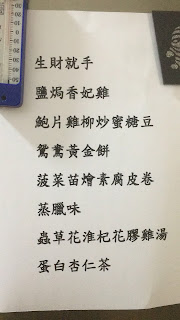 生財就手
鹽焗香妃雞
鮑片雞柳炒蜜糖豆
鴛鴦黃金餅
菠菜苗燴素腐皮卷
蒸臘味
蟲草花淮杞花膠雞湯
蛋白杏仁茶